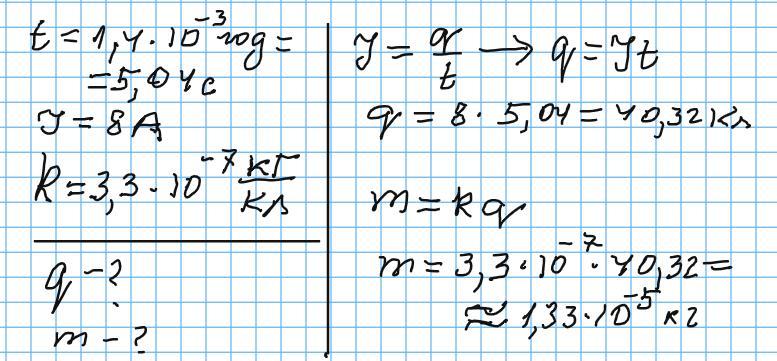 t = 1,4·10⁻³ год =
= 5,04 с
I = 8 А
k = 3,3·10⁻⁷ кг/Кл
q - ?
m - ?
I = q/t → q = It
q = 8 · 5,04 = 40,32 Кл
m = kq
m = 3,3·10⁻⁷ · 40,32 =
≈ 1,33·10⁻⁵ кг